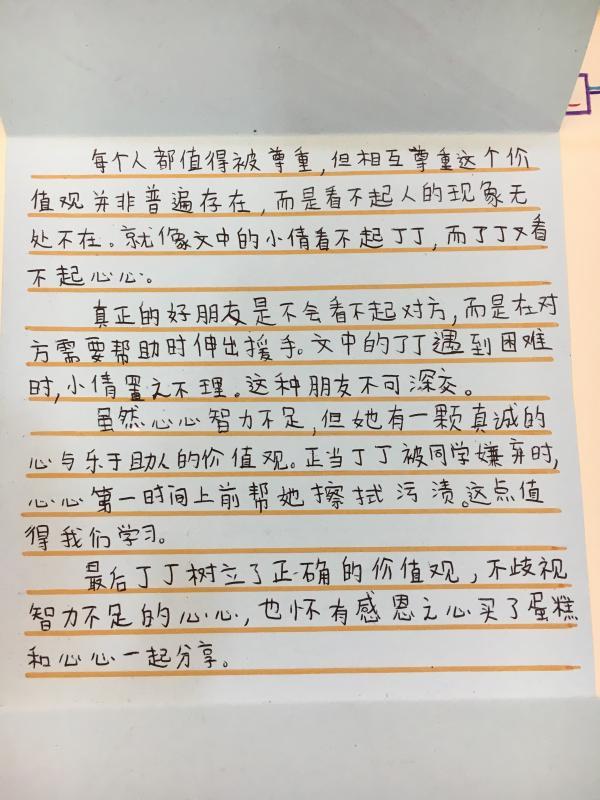 每个人都值得被尊重，但相互尊重这个价
值观并非普遍存在，而是看不起人的现象无
处不在。就像文中的小倩看不起丁丁，而丁丁又看
不起心心。
真正的好朋友是不会看不起对方，而是在对
方需要帮助时伸出援手。文中的丁丁遇到困难
时，小倩置之不理。这种朋友不可深交。
虽然心心智力不足，但她有一颗真诚的
心与乐于助人的价值观。正当丁丁被同学嫌弃时，
心心第一时间上前帮她擦拭污渍。这点值
得我们学习。
最后丁丁树立了正确的价值观，不歧视
智力不足的心心，也怀有感恩之心买了蛋糕
和心心一起分享。